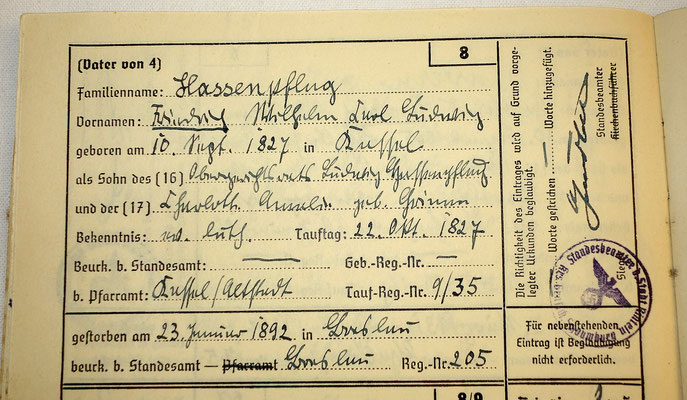 8
(Vater von 4)
Familienname: Hassenpflug
Vornamen: Friedrich Wilhelm Carl Ludwig
geboren am 10. Sept. 1827 in Kassel
als Sohn des (16) Obergerichtsrats Ludwig Hassenpflug
und der (17) Charlotte Amalie geb. Grimm
Bekenntnis: ev. luth. Tauftag: 22. Okt. 1827
Beurk. b. Standesamt: — Geb.-Reg.-Nr. —
b. Pfarramt: Kassel/Altstadt Tauf-Reg.-Nr. 9/35
gestorben am 23. Januar 1892 in Breslau
beurk. b. Standesamt — Pfarramt Breslau Reg.-Nr. 205
8/9
Die Richtigkeit des Eintrages wird auf Grund vorge-
legter Urkunden beglaubigt.
— Worte gestrichen — Worte hinzugefügt.
Standesbeamter
Kirchenbuchführer
Siegel
Für nebenstehenden
Eintrag ist Beglaubigung
nicht erforderlich.